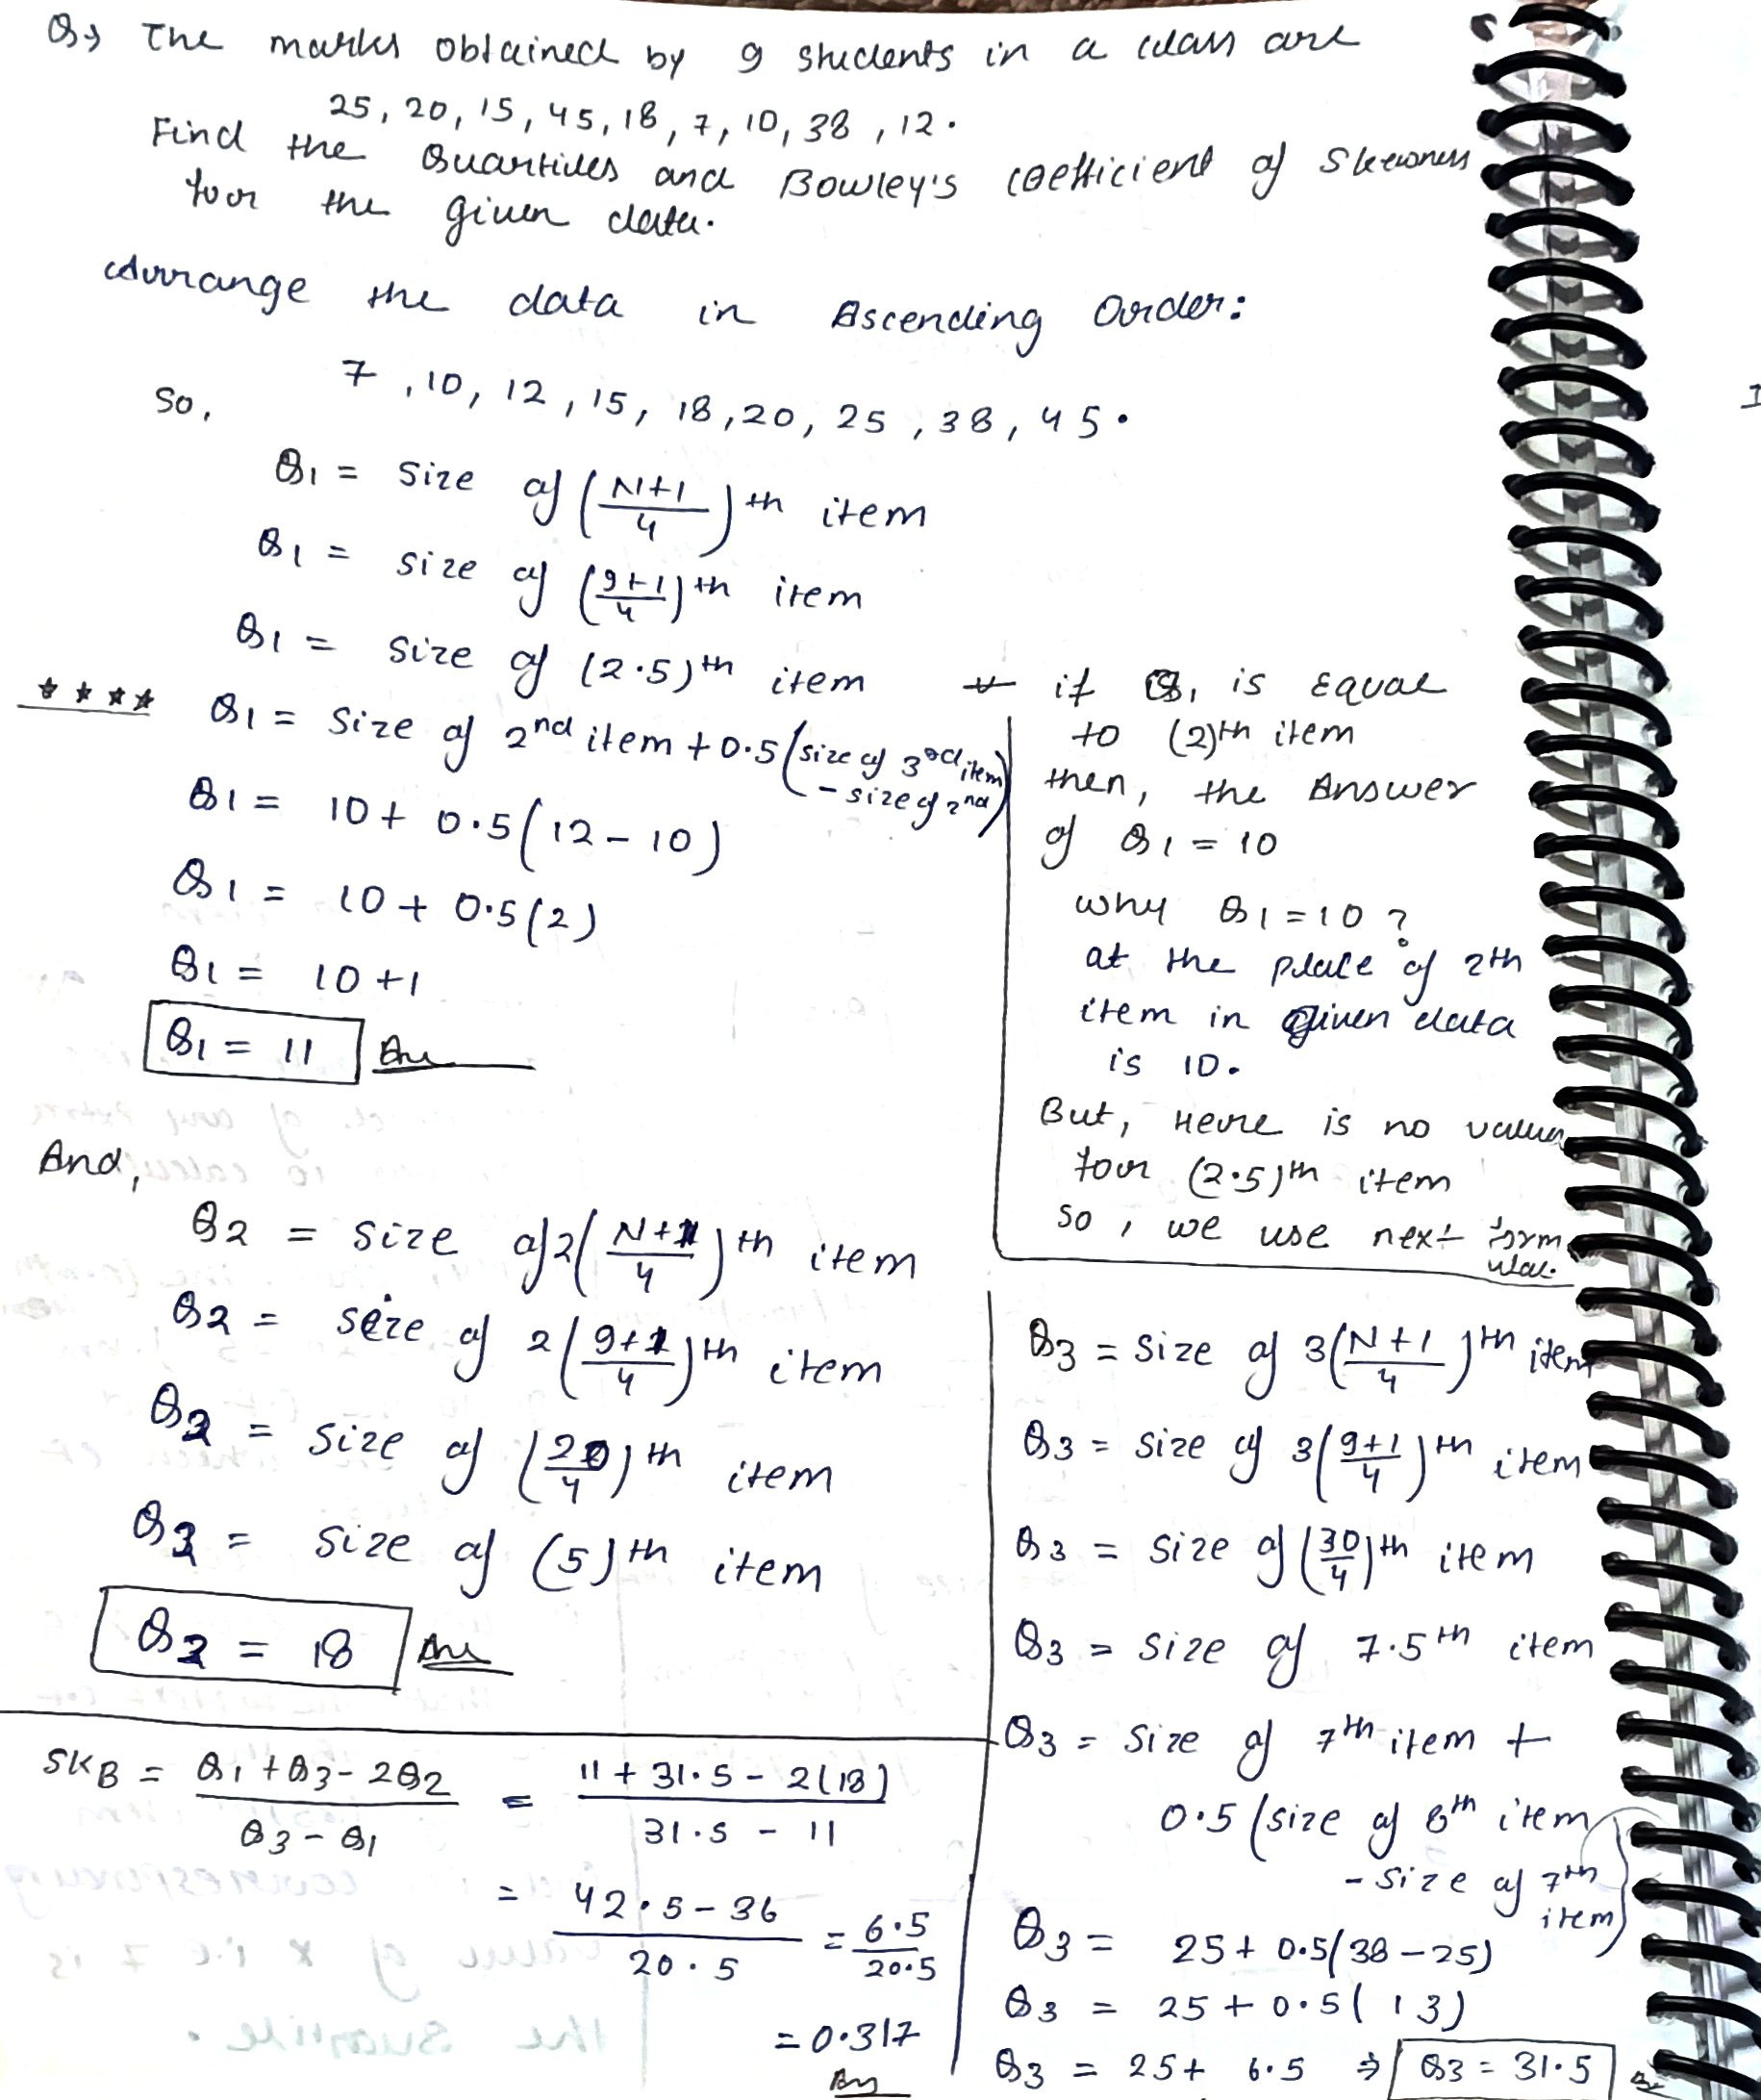 Q→ The marks obtained by 9 students in a class are
25, 20, 15, 45, 18, 7, 10, 38, 12.
Find the Quartiles and Bowley's coefficient of Skewness
for the given data.
Arrange the data in Ascending Order:
7, 10, 12, 15, 18, 20, 25, 38, 45.
So,
Q1 = Size of (N+1/4)th item
Q1 = size of (9+1/4)th item
Q1 = Size of (2.5)th item
**** Q1 = Size of 2nd item + 0.5 (size of 3rd item
- size of 2nd)
Q1 = 10 + 0.5(12 - 10)
Q1 = 10 + 0.5(2)
Q1 = 10 + 1
Q1 = 11 Ans
if Q1 is Equal
to (2)th item
then, the Answer
of Q1 = 10
why Q1 = 10 ?
at the place of 2th
item in given data
is 10.
But, Here is no value
for (2.5)th item
so, we use next form
ula.
And,
Q2 = size of 2(N+1/4)th item
Q2 = size of 2(9+1/4)th item
Q2 = size of (20/4)th item
Q2 = size of (5)th item
Q2 = 18 Ans
Q3 = Size of 3(N+1/4)th item
Q3 = Size of 3(9+1/4)th item
Q3 = Size of (30/4)th item
Q3 = Size of 7.5th item
Q3 = Size of 7th item +
0.5 (size of 8th item
- size of 7th
item)
Q3 = 25 + 0.5(38 - 25)
Q3 = 25 + 0.5(13)
Q3 = 25 + 6.5 ⇒ Q3 = 31.5
SKB = Q1 + Q3 - 2Q2 / Q3 - Q1 = 11 + 31.5 - 2(18) / 31.5 - 11
= 42.5 - 36 / 20.5 = 6.5 / 20.5
= 0.317
Ans